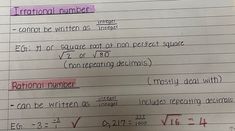 Irrational number
- cannot be written as integer/integer
EG: π or square root of non perfect square
√2 or √80
(non repeating decimals)
Rational number (mostly deal with)
- can be written as integer/integer Includes repeating decimals
EG. -3 = -3/1 ✓ 0,217 = 217/1000 √16 = 4